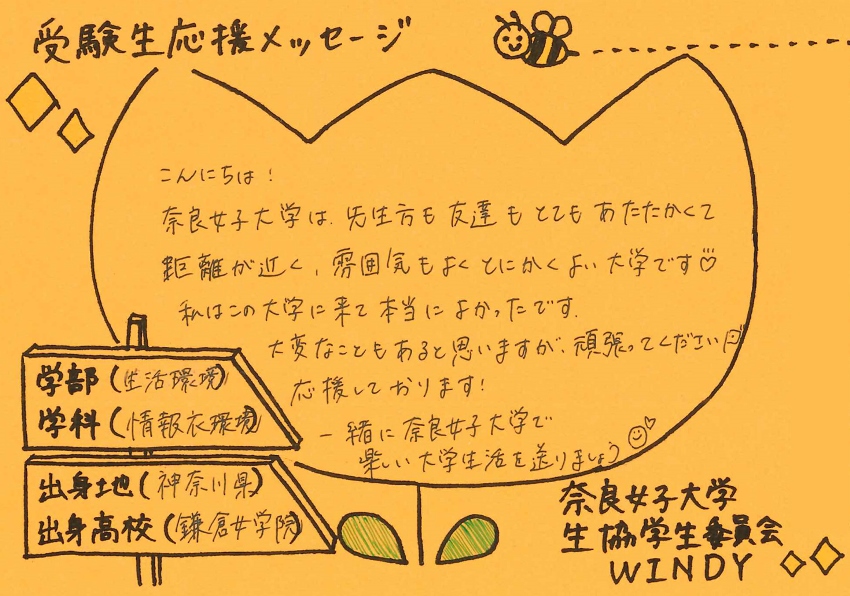 受験生応援メッセージ
こんにちは！
奈良女子大学は、先生方も友達もとてもあたたかくて
距離が近く、雰囲気もよくとにかくよい大学です♡
私はこの大学に来て本当によかったです。
大変なこともあると思いますが、頑張ってください
応援しております！
一緒に奈良女子大学で
楽しい大学生活を送りましょう
学部（生活環境）
学科（情報衣環境）
出身地（神奈川県）
出身高校（鎌倉女学院）
奈良女子大学
生協学生委員会
WINDY